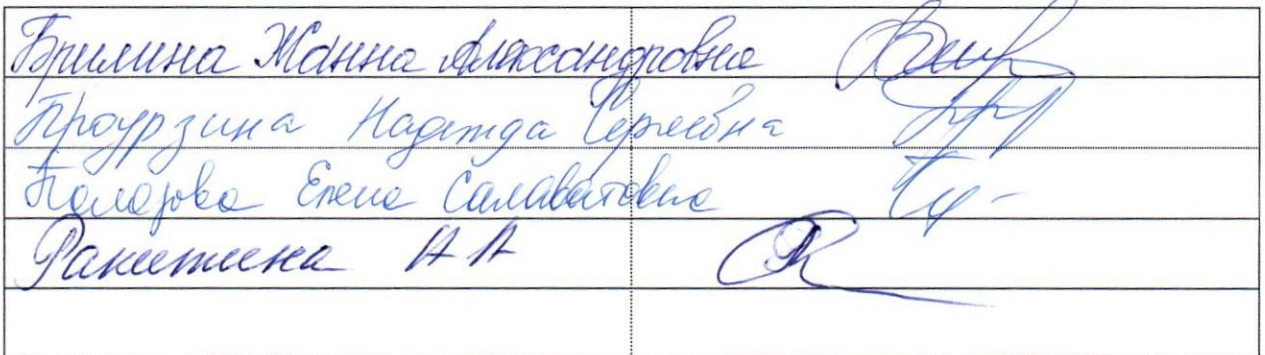 Брилина Жанна Александровна
Проурзина Надежда Сергеевна
Елена Салаватовна
Ракитина А А